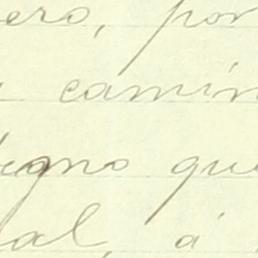 ero, por
camin
egno que
al, á